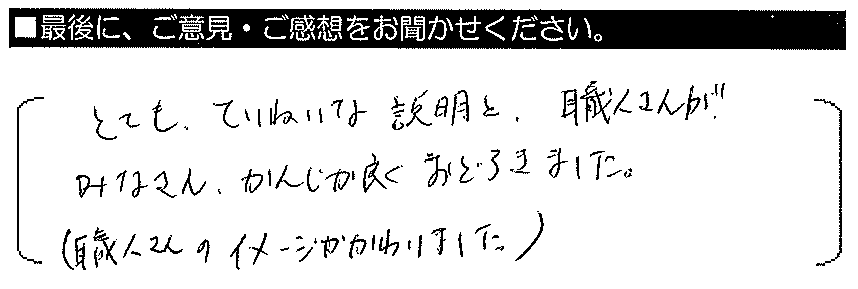 ■最後に、ご意見・ご感想をお聞かせください。
とても、ていねいな説明と、職人さんが
みなさん、かんじが良くおどろきました。
(職人さんのイメージがかわりました)